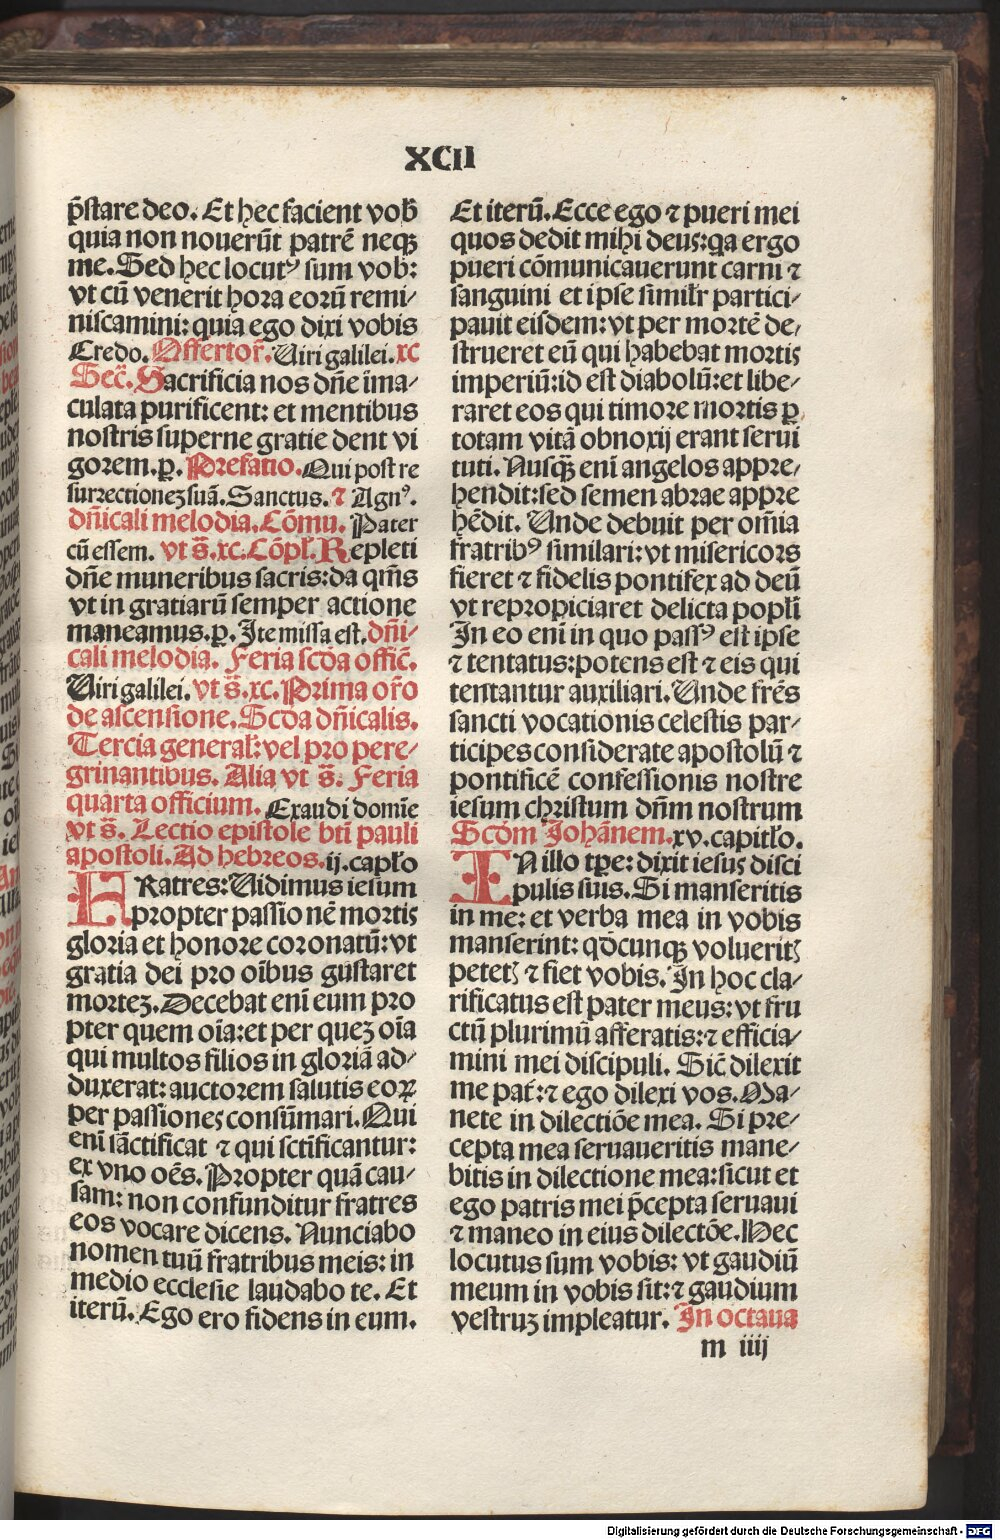 XCII
p̄stare deo. Et hec facient vob̄
quia non nouerūt patrē neqꝫ
me. Sed hec locutꝰ sum vob:
vt cū venerit hora eorū remi⸗
niscamini: quia ego dixi vobis
Credo. Offertor̄. Uiri galilei. xc
Sec̄. Sacrificia nos dn̄e īma⸗
culata purificent: et mentibus
nostris superne gratie dent vi
gorem. ꝑ. Prefatio. Qui post re
surrectioneꝫ suā. Sanctus. ⁊ Agnꝰ.
dn̄icali melodia. Cōmu. Pater
cū essem. vt s̄. xc. Cōpl̄. Repleti
dn̄e muneribus sacris: da qm̄s
vt in gratiarū semper actione
maneamus. ꝑ. Ite missa est. dn̄i⸗
cali melodia. Feria scd̄a offic̄.
Uiri galilei. vt s̄. xc. Prima or̄o
de ascensione. Scd̄a dn̄icalis.
Tercia general̄: vel pro pere⸗
grinantibus. Alia vt s̄. Feria
quarta officium. Exaudi domīe
vt s̄. Lectio epistole bt̄i pauli
apostoli. Ad hebreos. ij. capl̄o
FRatres: Uidimus iesum
propter passionē mortis
gloria et honore coronatū: vt
gratia dei pro oībus gustaret
morteꝫ. Decebat enī eum pro
pter quem oīa: et per queꝫ oīa
qui multos filios in gloriā ad⸗
duxerat: auctorem salutis eoꝝ
per passiones consūmari. Qui
enī sāctificat ⁊ qui sctīficantur:
ex vno oēs. Propter quā cau⸗
sam: non confunditur fratres
eos vocare dicens. Nunciabo
nomen tuū fratribus meis: in
medio ecclesie laudabo te. Et
iterū. Ego ero fidens in eum.
Et iterū. Ecce ego ⁊ pueri mei
quos dedit mihi deus: qa ergo
pueri cōmunicauerunt carni ⁊
sanguini et ipse simil̄r partici⸗
pauit eisdem: vt per mortē de⸗
strueret eū qui habebat mortis
imperiū: id est diabolū: et libe⸗
raret eos qui timore mortis ꝑ
totam vitā obnoxij erant serui
tuti. Nusq̄ꝫ enī angelos appre⸗
hendit: sed semen abrae appre
hēdit. Unde debuit per om̄ia
fratribꝰ similari: vt misericors
fieret ⁊ fidelis pontifex ad deū
vt repropiciaret delicta popl̄i
In eo enī in quo passꝰ est ipse
⁊ tentatus: potens est ⁊ eis qui
tentantur auxiliari. Unde frēs
sancti vocationis celestis par⸗
ticipes consīderate apostolū ⁊
pontificē confessionis nostre
iesum christum dn̄m nostrum
Scd̄m Johānem. xv. capitl̄o.
IN illo tꝑe: dixit iesus disci
pulis suis. Si manseritis
in me: et verba mea in vobis
manserint: qd̄cunqꝫ volueritꝭ
petetꝭ ⁊ fiet vobis. In hoc cla⸗
rificatus est pater meus: vt fru
ctū plurimū afferatis: ⁊ efficia⸗
mini mei discipuli. Sic̄ dilexit
me pat̄: ⁊ ego dilexi vos. Ma⸗
nete in dilectiōe mea. Si pre⸗
cepta mea seruaueritis mane⸗
bitis in dilectione mea: sicut et
ego patris mei p̄cepta seruaui
⁊ maneo in eius dilectōe. Hec
locutus sum vobis: vt gaudiū
meum in vobis sit: ⁊ gaudium
vestruꝫ impleatur. In octaua
m iiij
Digitalisierung gefördert durch die Deutsche Forschungsgemeinschaft - DFG